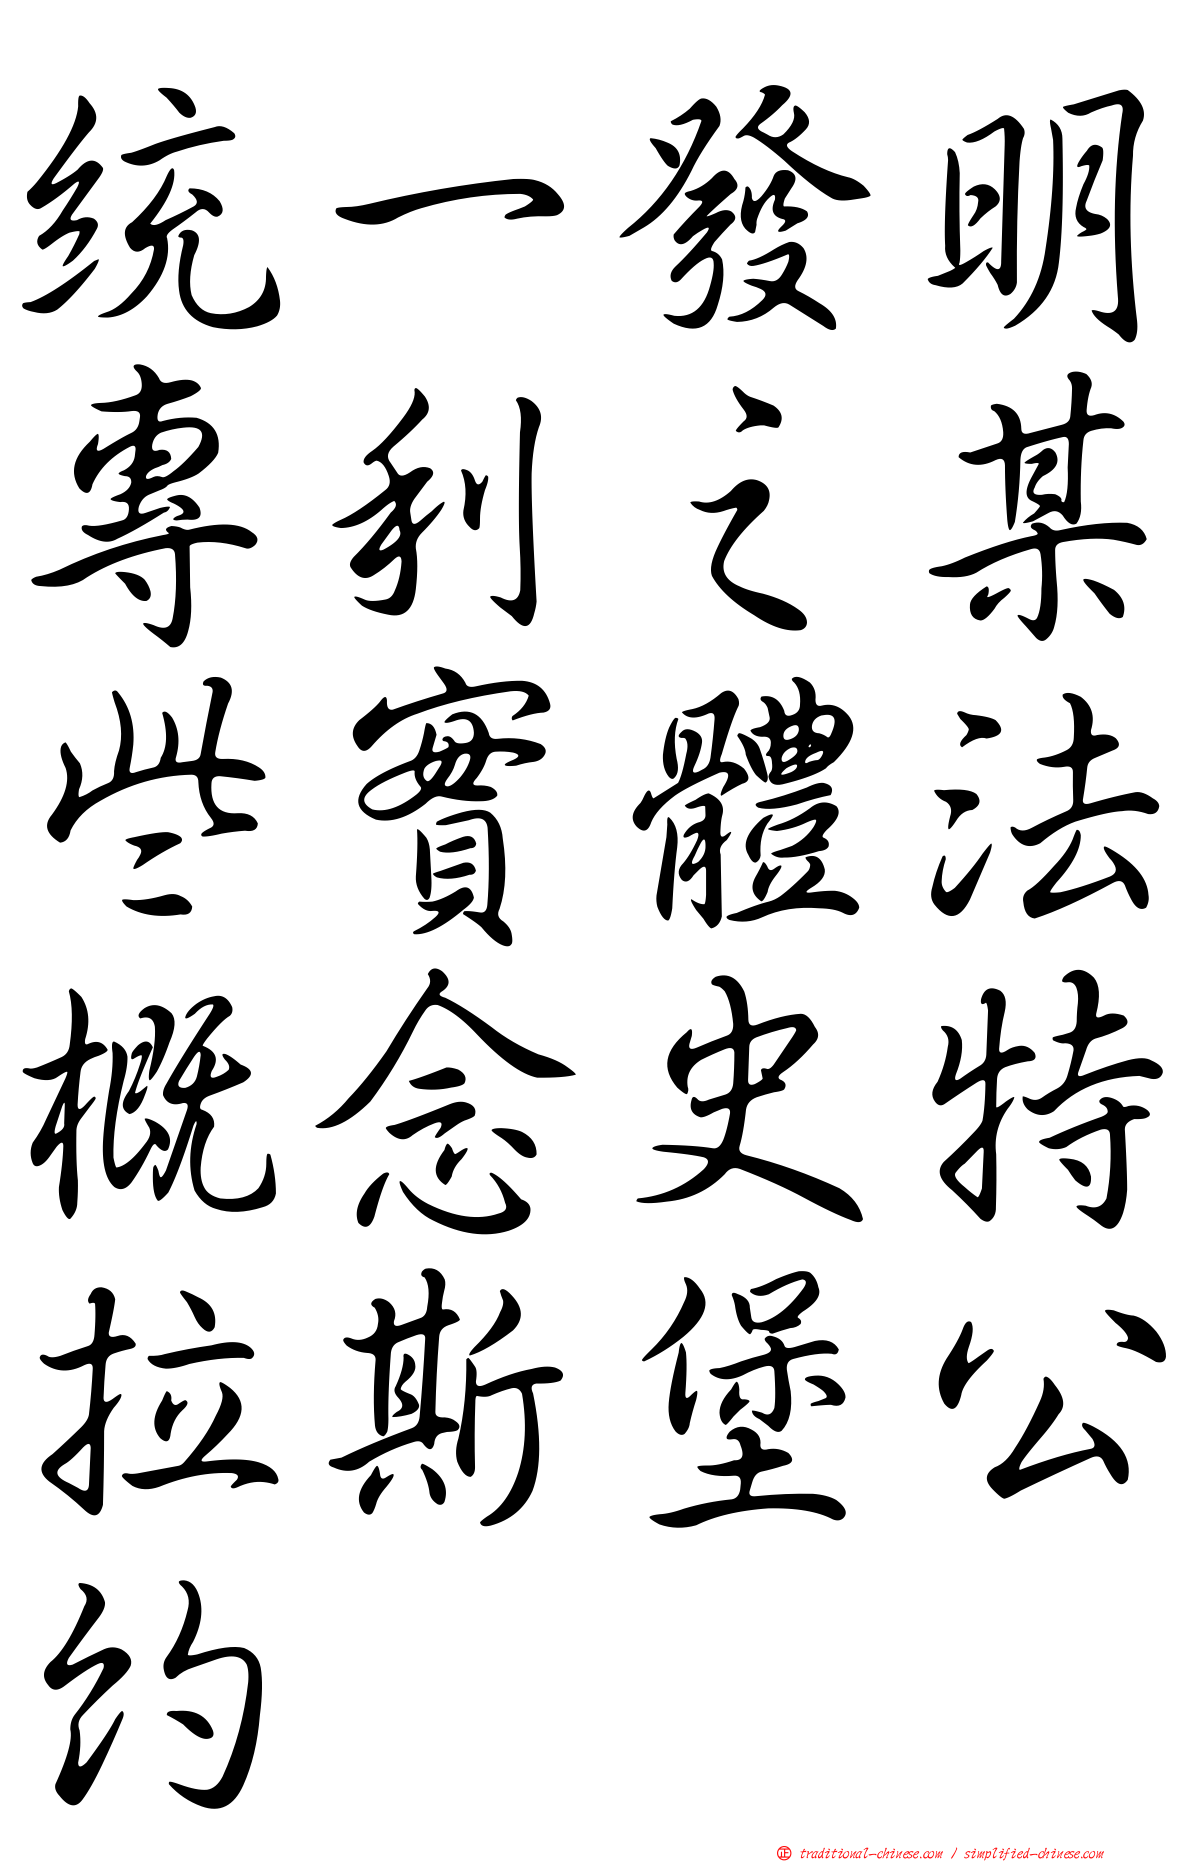 統一發明
專利之某
些實體法
概念史特
拉斯堡公
約
正 traditional-chinese.com / simplified-chinese.com